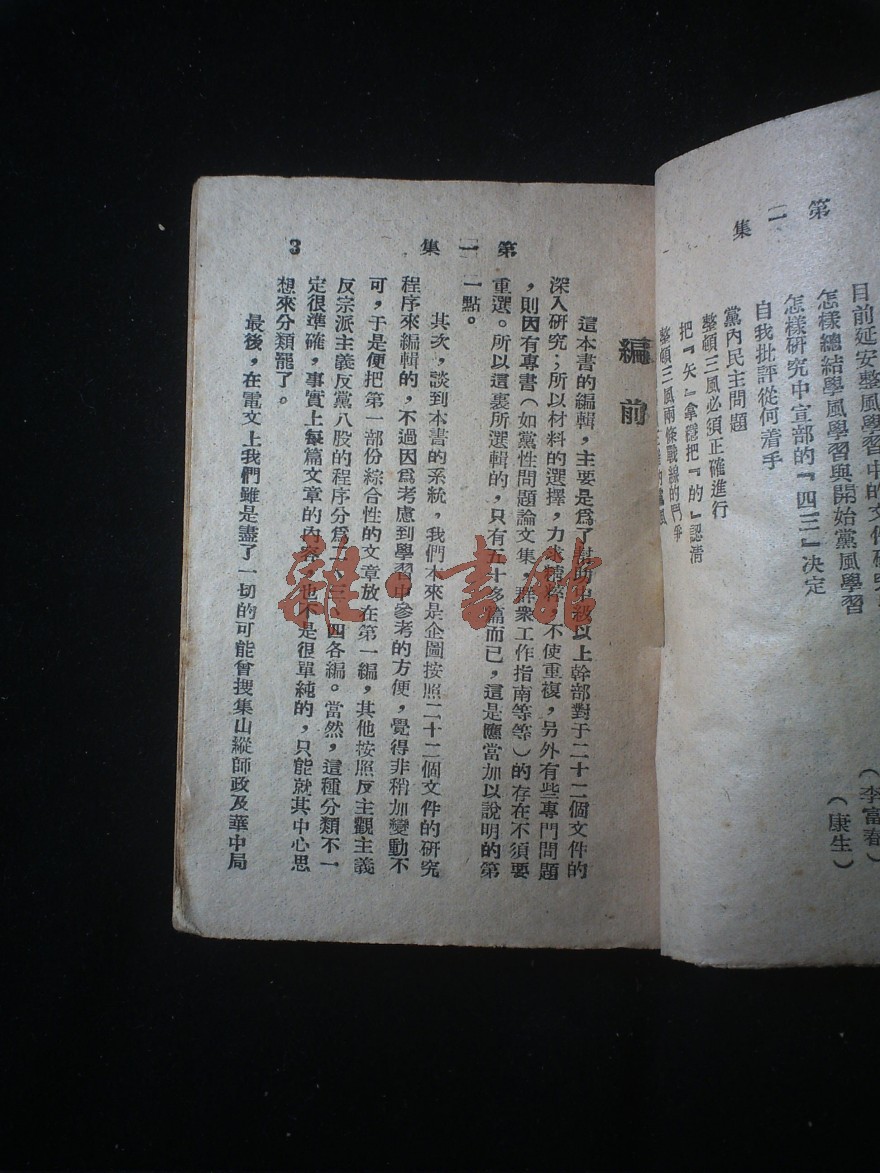 第二集
目前延安整風學習中的文件研究
怎樣總結學風學習與開始黨風學習
怎樣研究中宣部的『四三』決定
（李富春）
（康生）
自我批評從何着手
黨內民主問題
整頓三風必須正確進行
把『矢』拿穩把『的』認清
整頓三風兩條戰線的鬥爭
第一集
3
編前
這本書的編輯，主要是爲了幫助中級以上幹部對于二十二個文件的
深入研究；所以材料的選擇，力求精粹，不使重複，另外有些專門問題
，則因有專書（如黨性問題論文集，群衆工作指南等等）的存在不須要
重選。所以這裏所選輯的，只有五十多篇而已，這是應當加以說明的第
一點。
其次，談到本書的系統，我們本來是企圖按照二十二個文件的研究
程序來編輯的，不過因爲考慮到學習中參考的方便，覺得非稍加變動不
可，于是便把第一部份綜合性的文章放在第一編，其他按照反主觀主義
反宗派主義反黨八股的程序分爲二、三、四各編。當然，這種分類不一
定很準確，事實上每篇文章的內容，也不是很單純的，只能就其中心思
想來分類罷了。
最後，在電文上我們雖是盡了一切的可能會搜集山縱師政及華中局
雜·書館